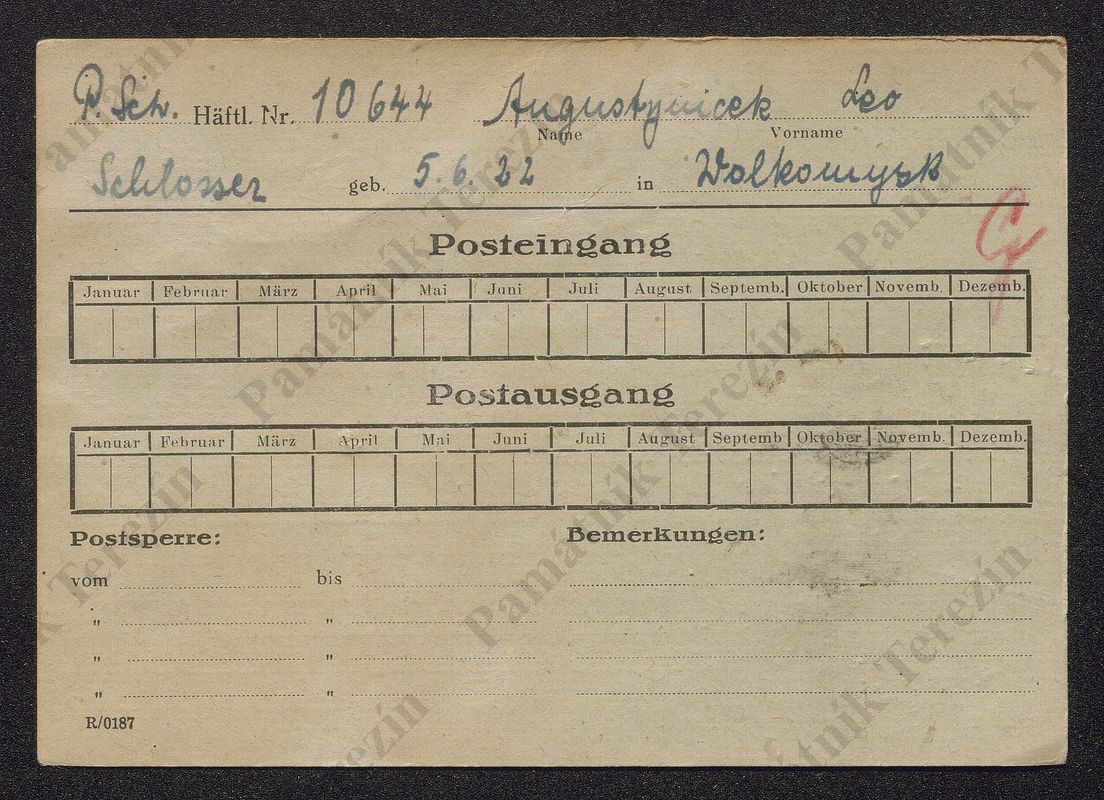 P. Sch. Häftl. Nr. 10644 Augustynicek Leo
Name Vorname
Schlosser geb. 5. 6. 22 in Wolkomysk
Posteingang
Januar Februar März April Mai Juni Juli August Septemb. Oktober Novemb. Dezemb.
Postausgang
Januar Februar März April Mai Juni Juli August Septemb Oktober Novemb. Dezemb.
Postsperre: Bemerkungen:
vom bis
" "
" "
" "
R/0187
Památník Terezín